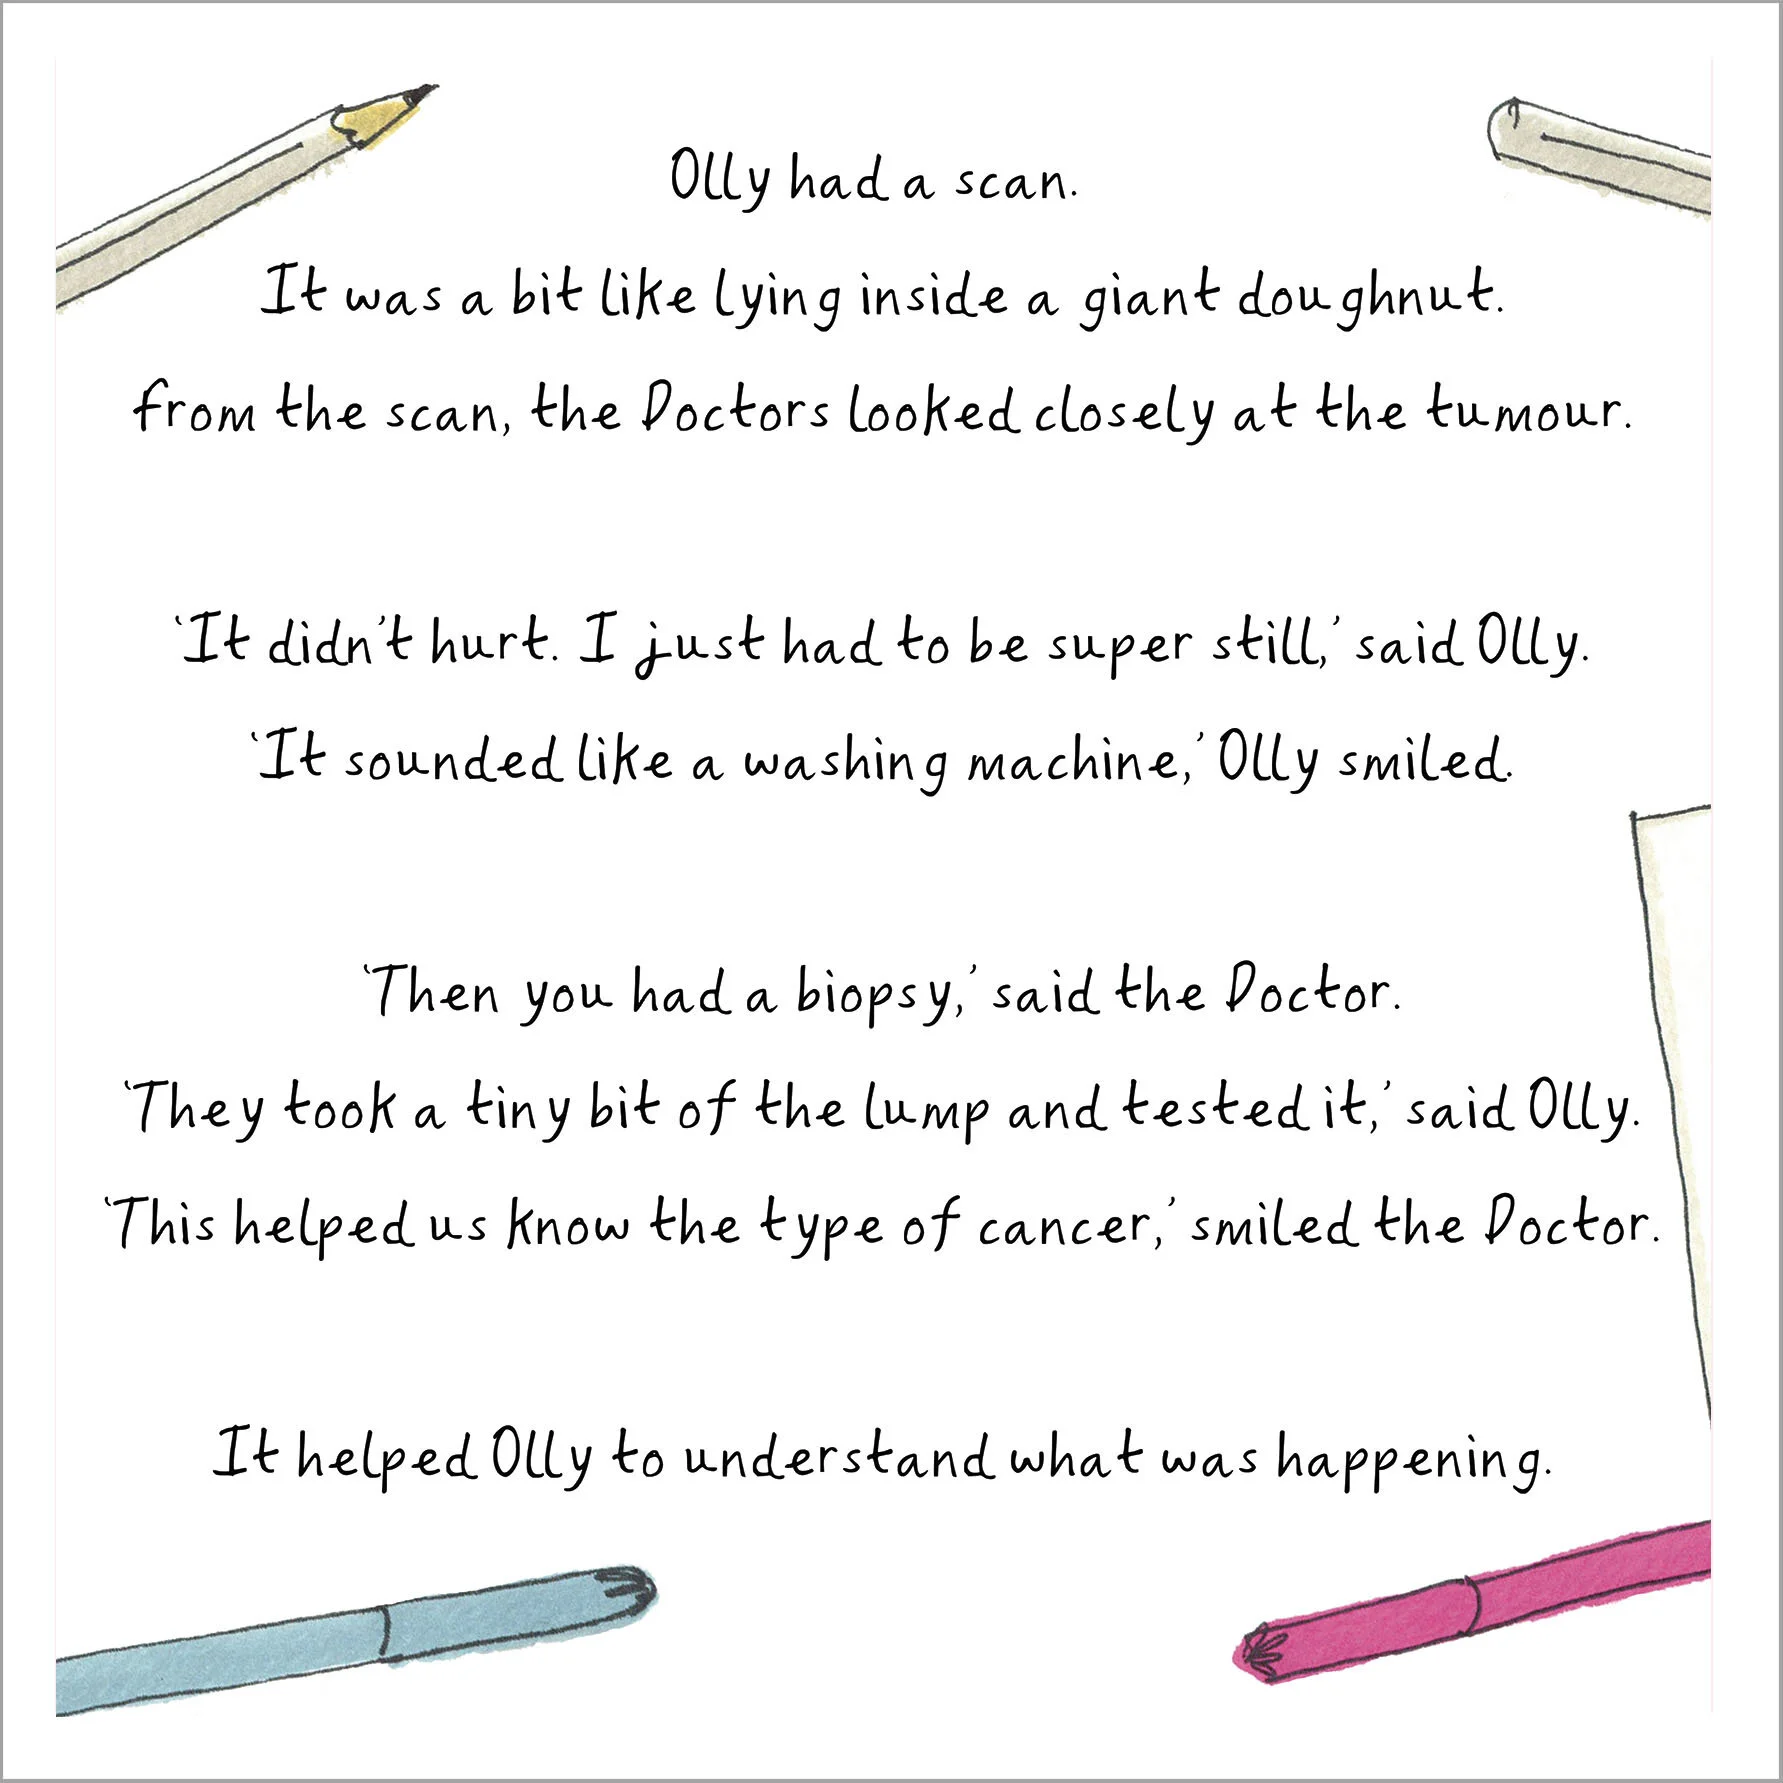 Olly had a scan.
It was a bit like lying inside a giant doughnut.
from the scan, the Doctors looked closely at the tumour.
‘It didn’t hurt. I just had to be super still,’ said Olly.
‘It sounded like a washing machine,’ Olly smiled.
‘Then you had a biopsy,’ said the Doctor.
‘They took a tiny bit of the lump and tested it,’ said Olly.
‘This helped us know the type of cancer,’ smiled the Doctor.
It helped Olly to understand what was happening.